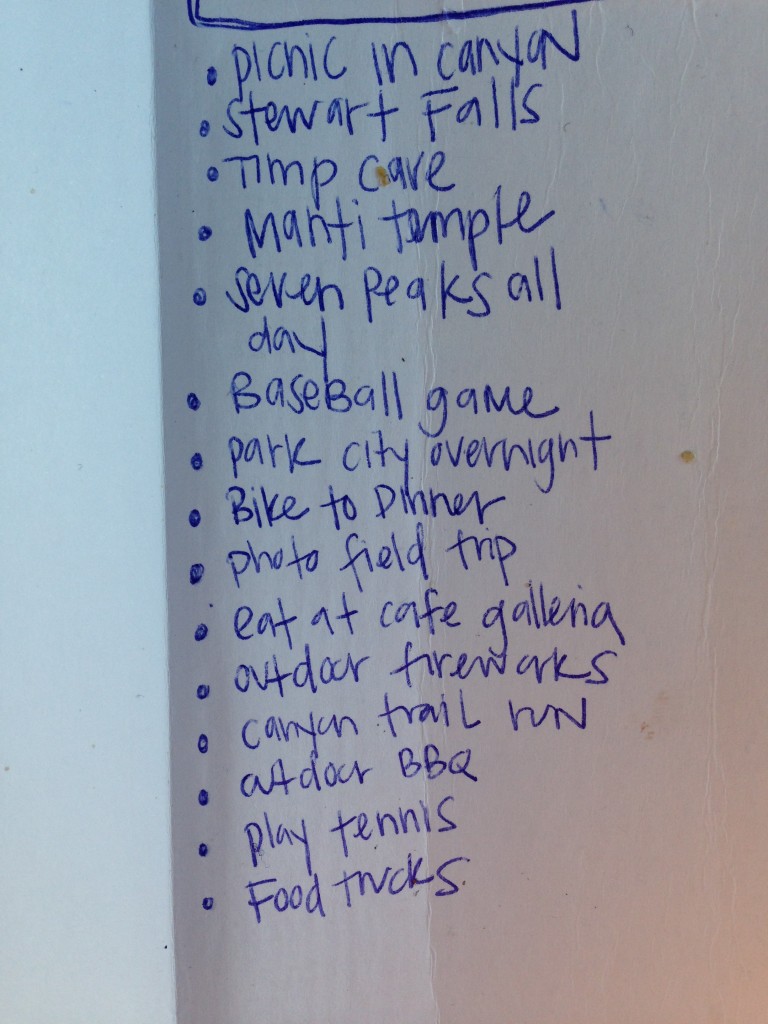 • picnic in canyon
• Stewart Falls
• Timp Cave
• Manti temple
• seven peaks all
day
• BaseBall game
• park city overnight
• Bike to Dinner
• photo field trip
• eat at cafe galleria
• outdoor fireworks
• canyn trail run
• outdoor BBQ
• play tennis
• Food trucks